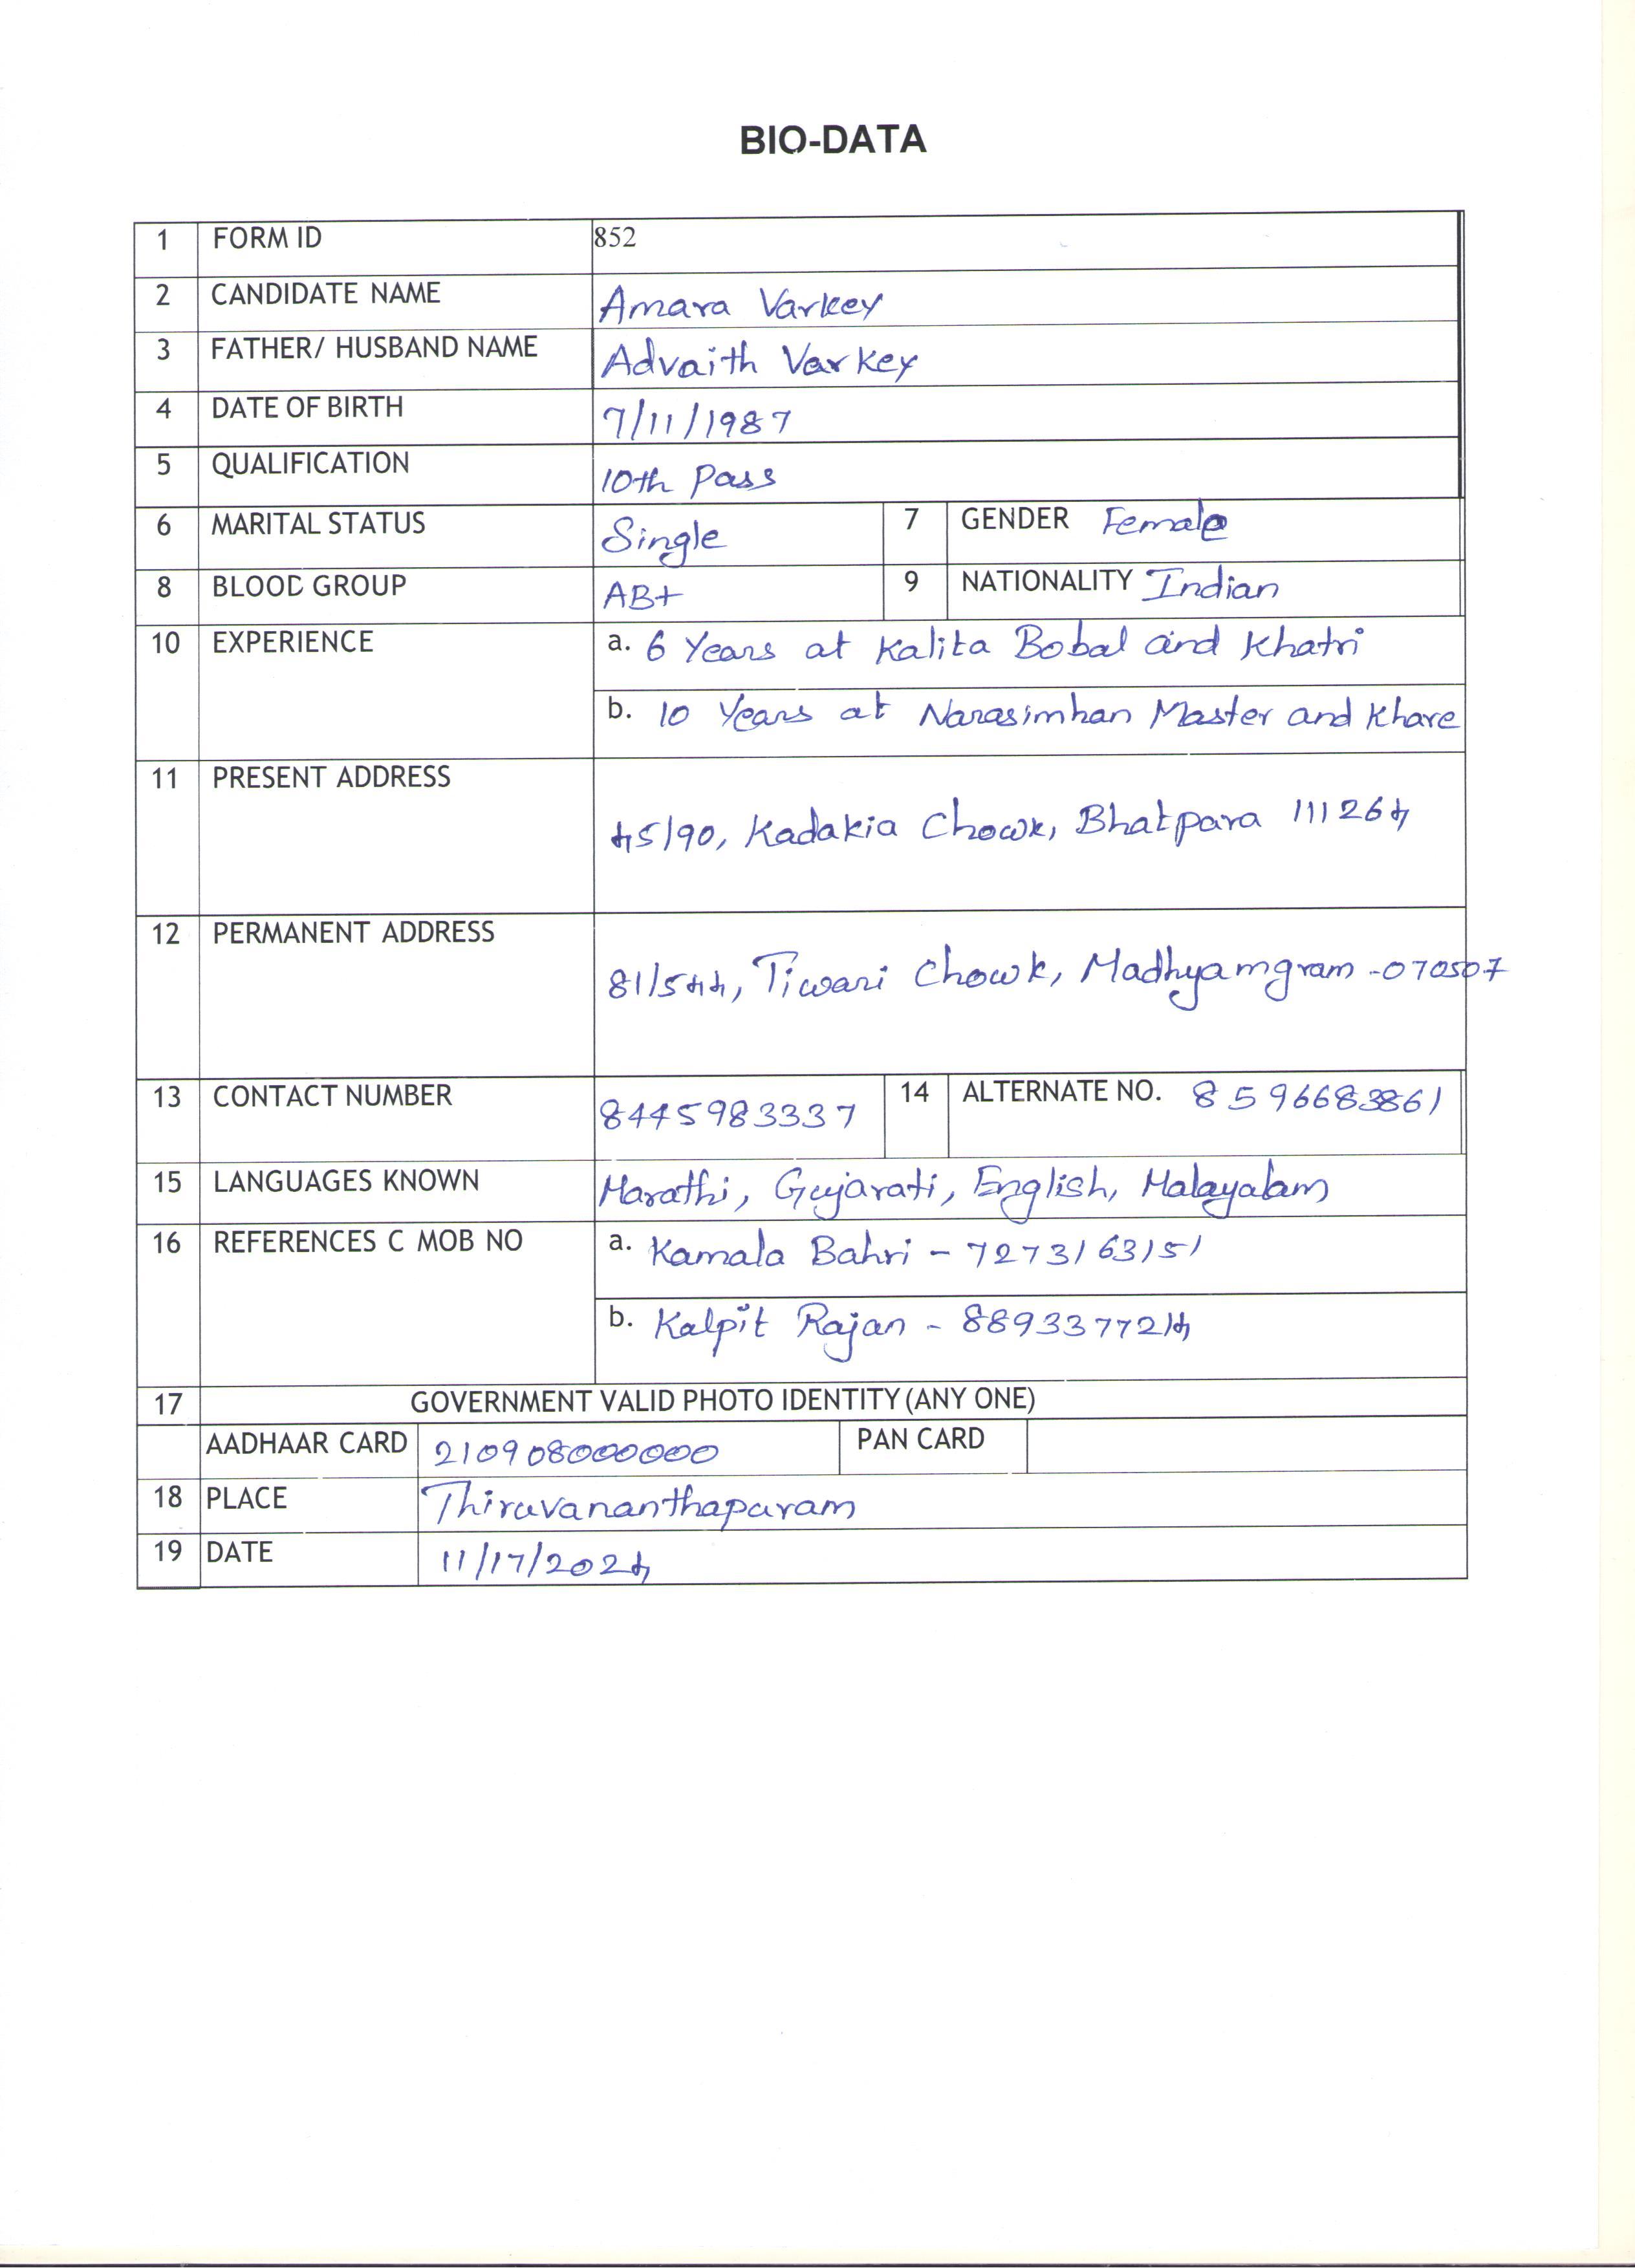 BIO-DATA
1 FORM ID 852
2 CANDIDATE NAME Amara Varkey
3 FATHER/ HUSBAND NAME Advaith Varkey
4 DATE OF BIRTH 7/11/1987
5 QUALIFICATION 10th Pass
6 MARITAL STATUS Single 7 GENDER Female
8 BLOOD GROUP AB+ 9 NATIONALITY Indian
10 EXPERIENCE a. 6 Years at Kalita Bobal and Khatri
b. 10 Years at Narasimhan Master and Khare
11 PRESENT ADDRESS
45/90, Kadakia Chowk, Bhatpara 111264
12 PERMANENT ADDRESS
81/544, Tiwari Chowk, Madhyamgram -070507
13 CONTACT NUMBER 8445983337 14 ALTERNATE NO. 8596683861
15 LANGUAGES KNOWN Marathi, Gujarati, English, Malayalam
16 REFERENCES C MOB NO a. Kamala Bahri - 7273163151
b. Kalpit Rajan - 8893377214
17 GOVERNMENT VALID PHOTO IDENTITY (ANY ONE)
AADHAAR CARD 210908000000 PAN CARD
18 PLACE Thiruvananthapuram
19 DATE 11/17/2024